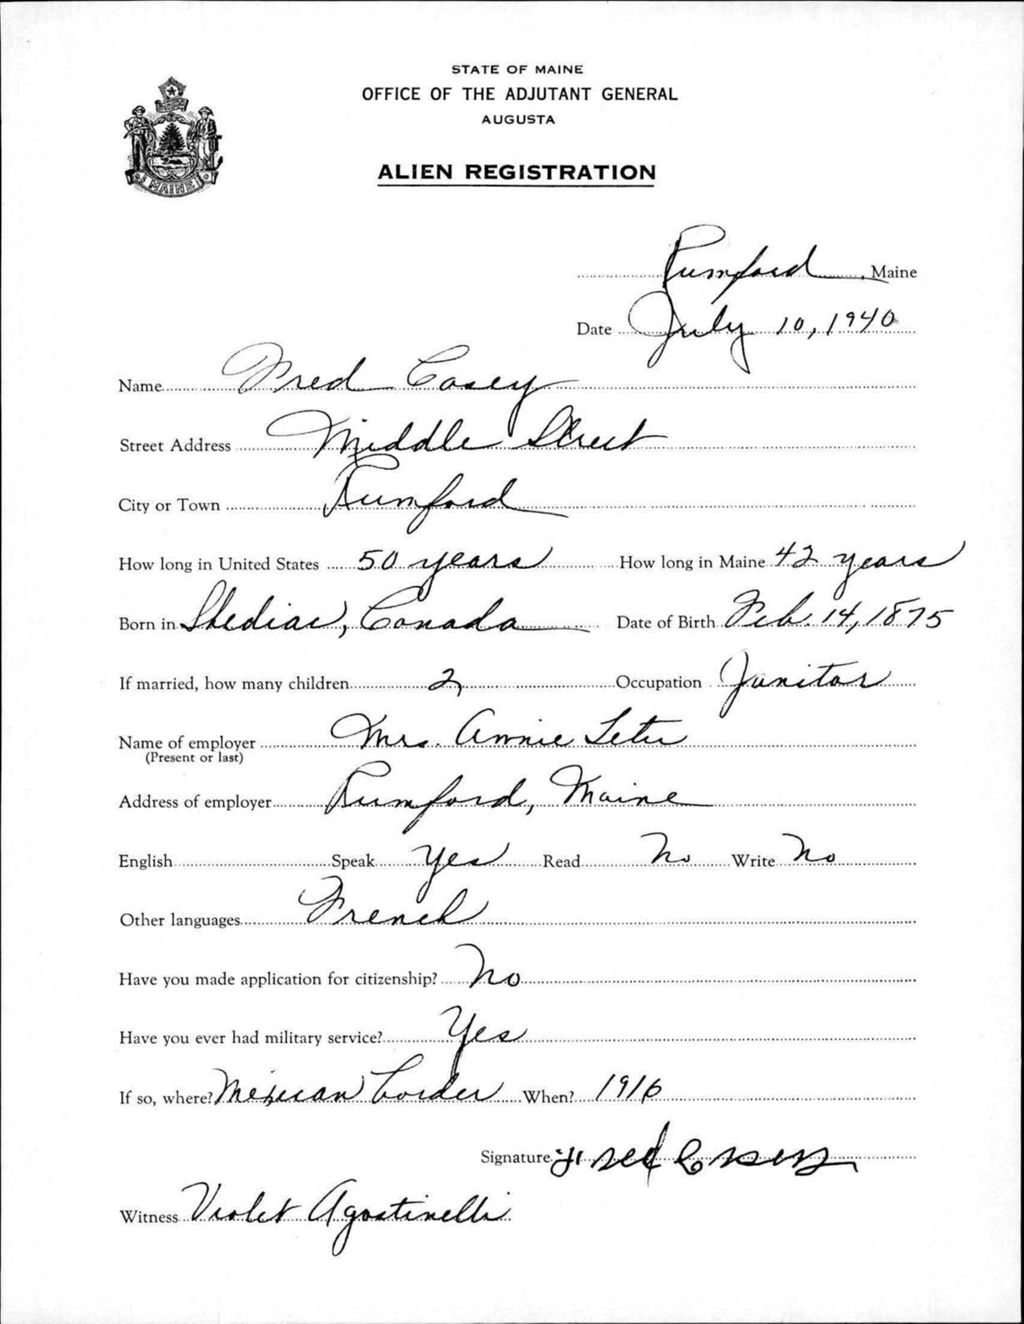 STATE OF MAINE
OFFICE OF THE ADJUTANT GENERAL
AUGUSTA
ALIEN REGISTRATION
MAINE
Rumford, Maine
Date July 10, 1940
Name Fred Casey
Street Address Middle Street
City or Town Rumford
How long in United States 50 years How long in Maine 42 years
Born in Shediac, Canada Date of Birth Feb. 14, 1875
If married, how many children 2 Occupation Janitor
Name of employer Mrs. Annie
(Present or last)
Address of employer Rumford, Maine
English Speak Yes Read No Write No
Other languages French
Have you made application for citizenship? No
Have you ever had military service? Yes
If so, where? Mexican border When? 1916
Signature Fred
Witness Violet Agostinelli